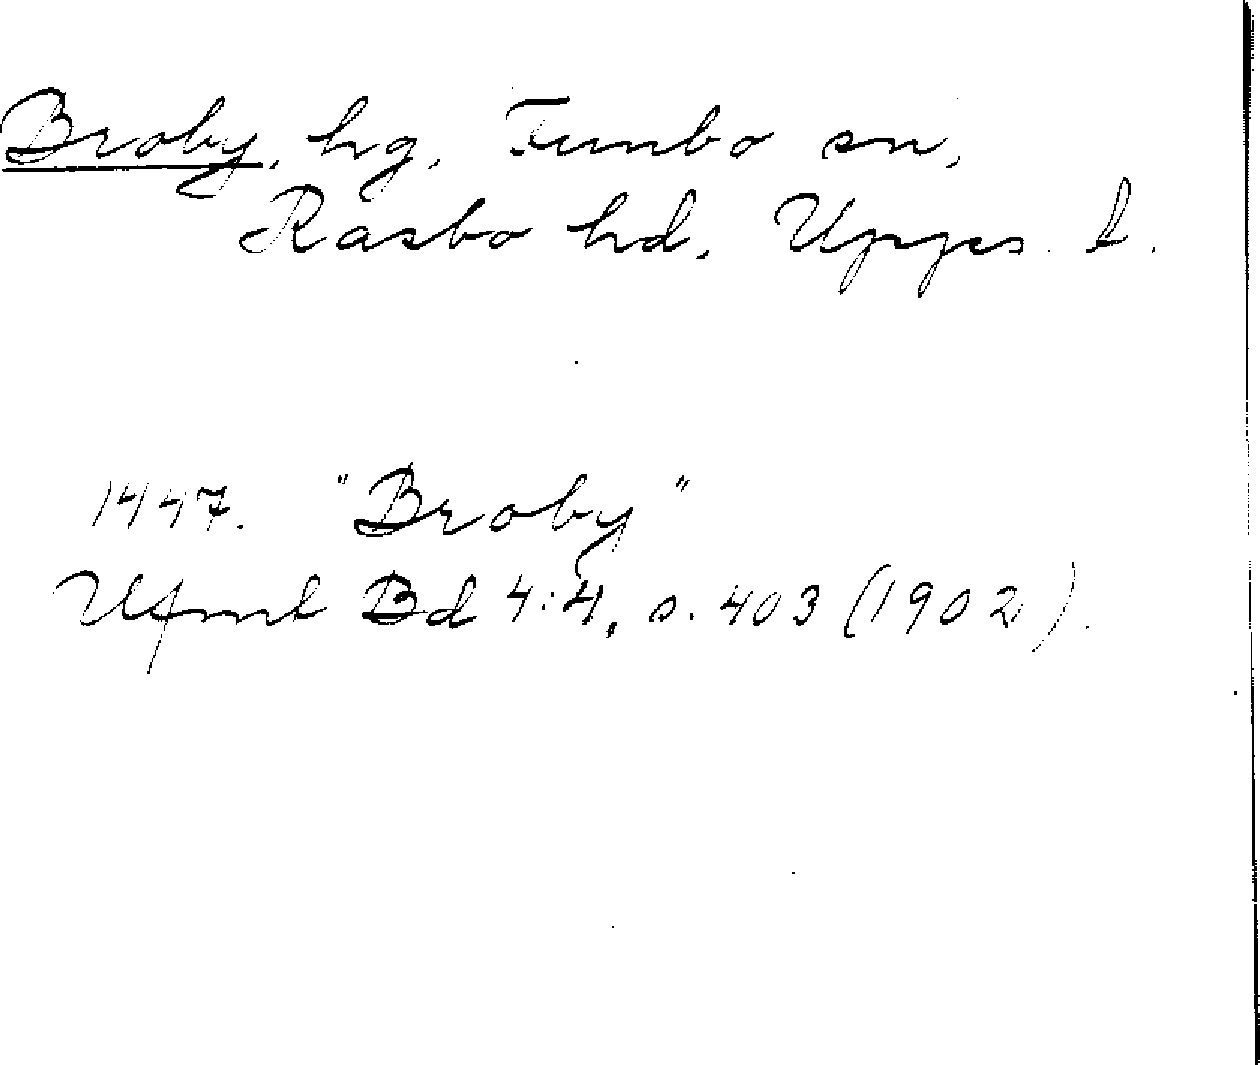 Broby, hg, Funbo sn,
Rasbo hd, Upps. l.
1447. "Broby"
Ufmt Bd 4:4, s. 403 (1902).